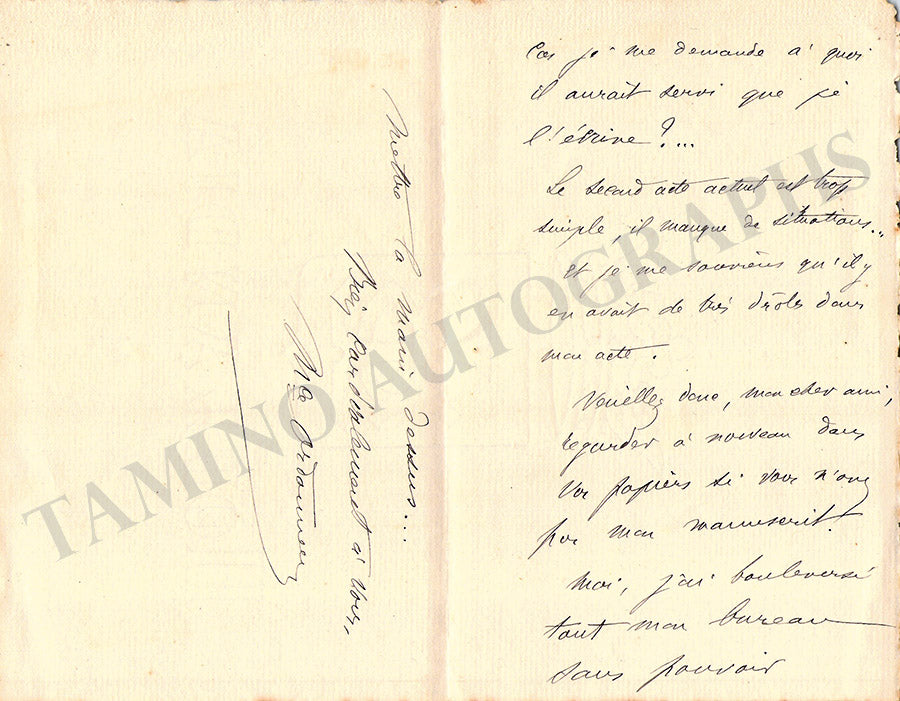 Car je me demande à quoi
il aurait servi que je
l'écrive?...
Le second acte actuel est trop
simple, il manque de situations..
et je me souviens qu'il y
en avait de très drôles dans
mon acte.
Veuillez donc, mon cher ami,
regarder à nouveau dans
vos papiers si vous n'avez
pas mon manuscrit!
Moi, j'ai bouleversé
tout mon bureau
sans pouvoir
mettre la main dessus...
Très cordialement à vous,
Mce Ordonneau
TAMINO AUTOGRAPHS